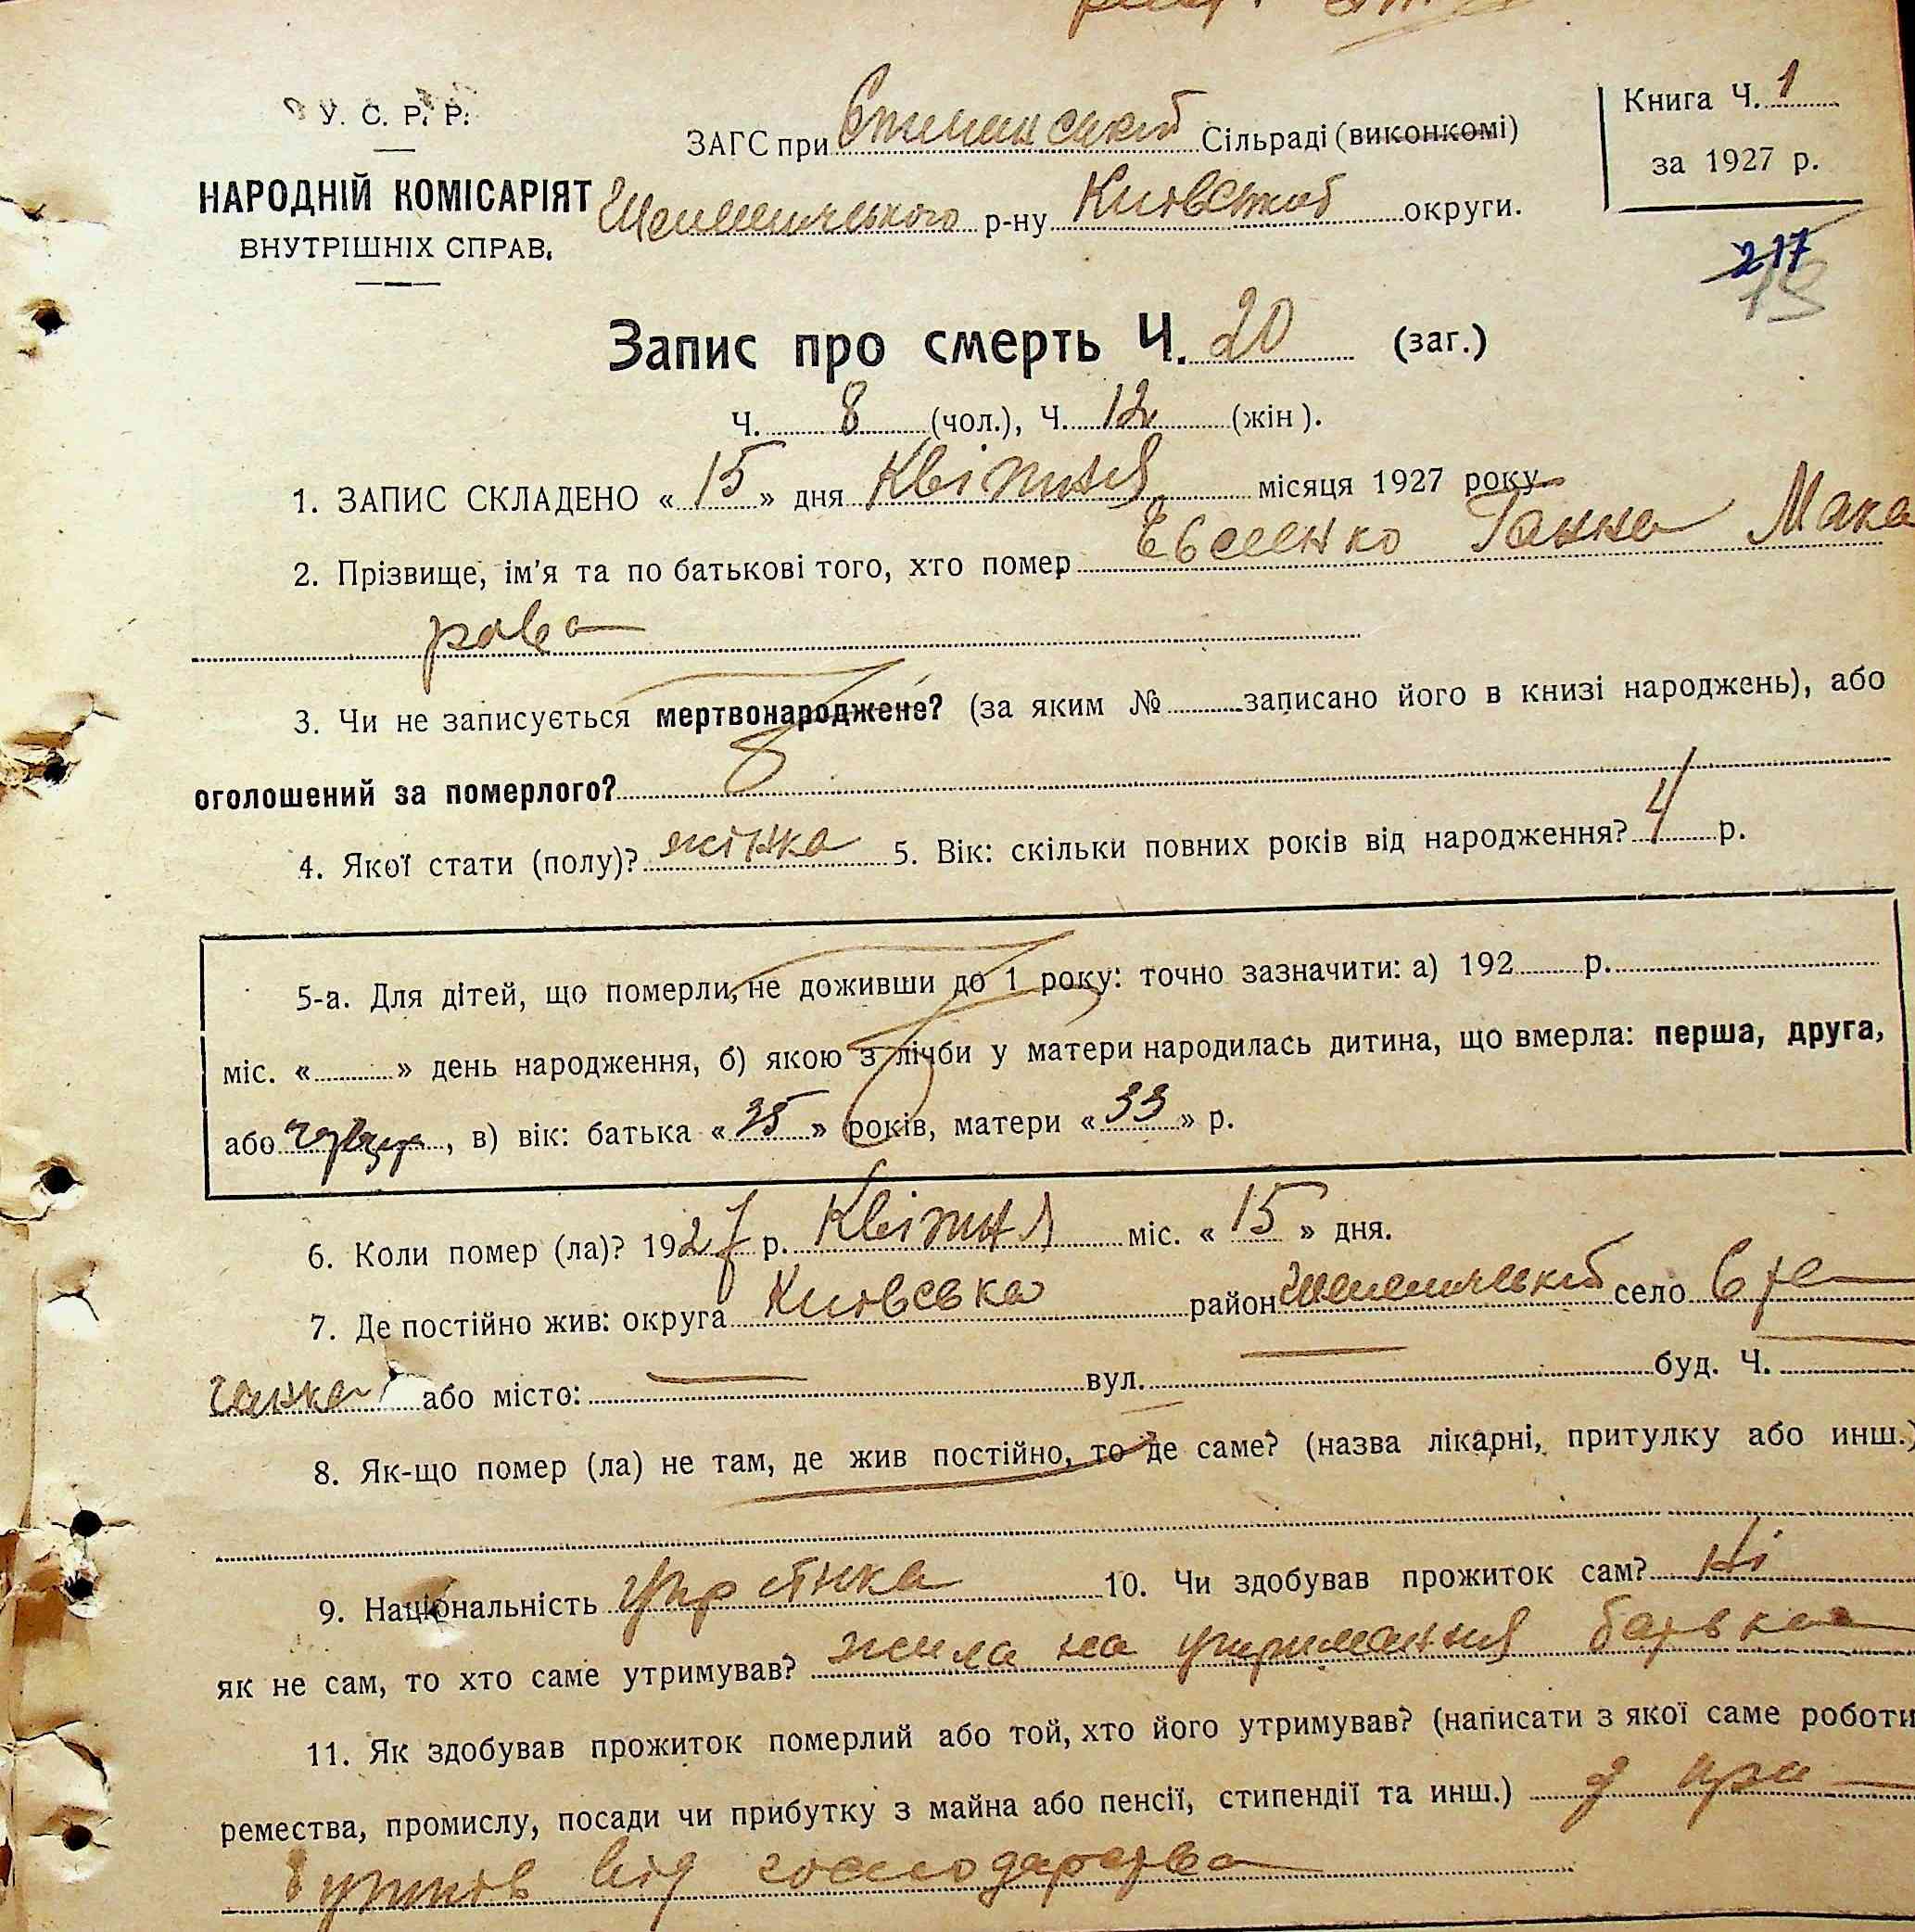 У. С. Р. Р.
ЗАГС при Стичанській Сільраді (виконкомі)
Книга Ч. 1
за 1927 р.
НАРОДНІЙ КОМІСАРІЯТ
ВНУТРІШНІХ СПРАВ.
р-ну Київської округи.
217
13
Запис про смерть Ч. 20 (заг.)
Ч. 8 (чол.), Ч. 12 (жін).
1. ЗАПИС СКЛАДЕНО « 15 » дня Квітня місяця 1927 року
2. Прізвище, ім'я та по батькові того, хто помер Евсенко Ганна Мака
рова
3. Чи не записується мертвонароджене? (за яким № записано його в книзі народжень), або
оголошений за померлого?
4. Якої стати (полу)? жінка 5. Вік: скільки повних років від народження? 4 р.
5-а. Для дітей, що померли, не доживши до 1 року: точно зазначити: а) 192 р.
міс. « » день народження, б) якою з лічби у матери народилась дитина, що вмерла: перша, друга,
або , в) вік: батька « 35 » років, матери « 33 » р.
6. Коли помер (ла)? 1927 р. Квітня міс. « 15 » дня.
7. Де постійно жив: округа Київська район село Сте
чанка або місто: вул. буд. Ч.
8. Як-що помер (ла) не там, де жив постійно, то де саме? (назва лікарні, притулку або инш.)
9. Національність 10. Чи здобував прожиток сам? Ні
як не сам, то хто саме утримував? жила на утримання батька
11. Як здобував прожиток померлий або той, хто його утримував? (написати з якої саме роботи
ремества, промислу, посади чи прибутку з майна або пенсії, стипендії та инш.) з при
бутків від господарства